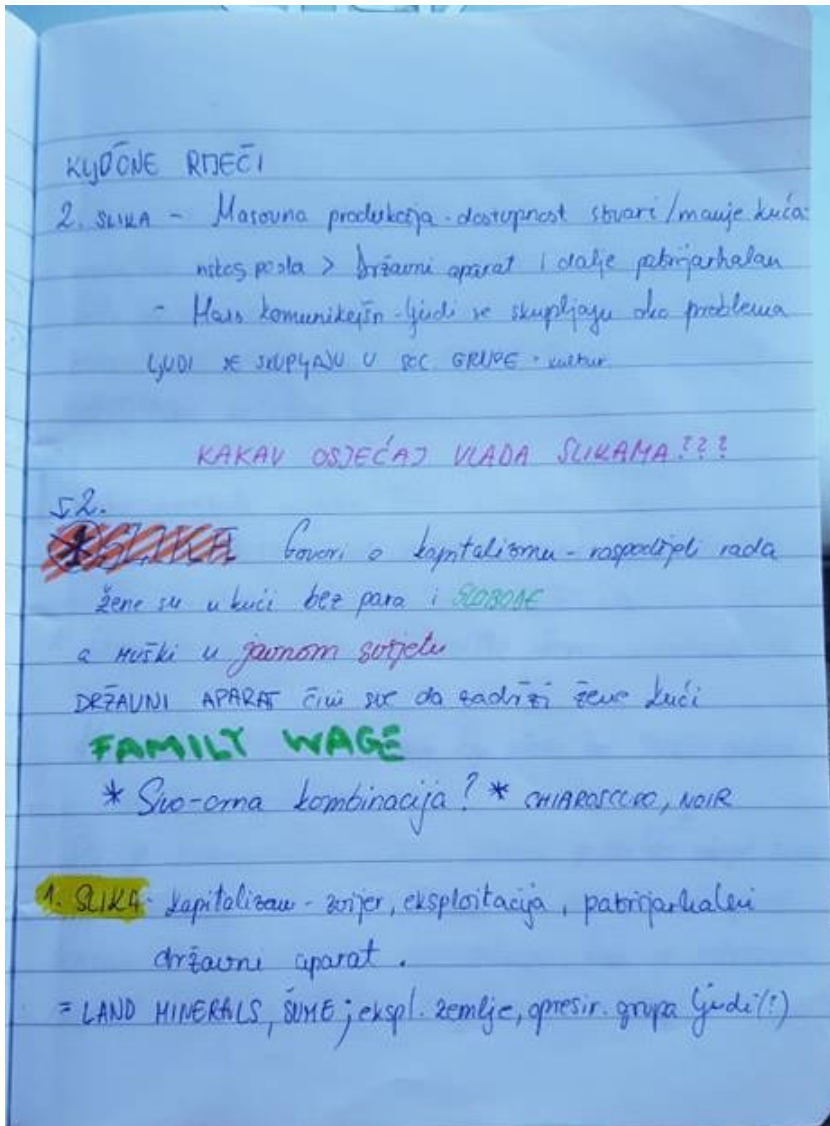 KLJUČNE RIJEČI
2. SLIKA - Masovna produkcija - dostupnost stvari / manje kućan-
skog posla > Državni aparat i dalje patrijarhalan
- Mass komunikejšn - ljudi se skupljaju oko problema
LJUDI SE SKUPLJAJU U SOC. GRUPE - kultur.
KAKAV OSJEĆAJ VLADA SLIKAMA???
2.
SLIKA Govori o kapitalizmu - raspodjeli rada
žene su u kući bez para i SLOBODE
a MUŠKI u javnom svijetu
DRŽAVNI APARAT čini sve da zadrži žene kući
FAMILY WAGE
* Sivo-crna kombinacija? * CHIAROSCURO, NOIR
1. SLIKA - kapitalizam - zvijer, eksploitacija, patrijarhalni
državni aparat.
= LAND MINERALS, ŠUME; ekspl. zemlje, opresir. grupa ljudi(!)